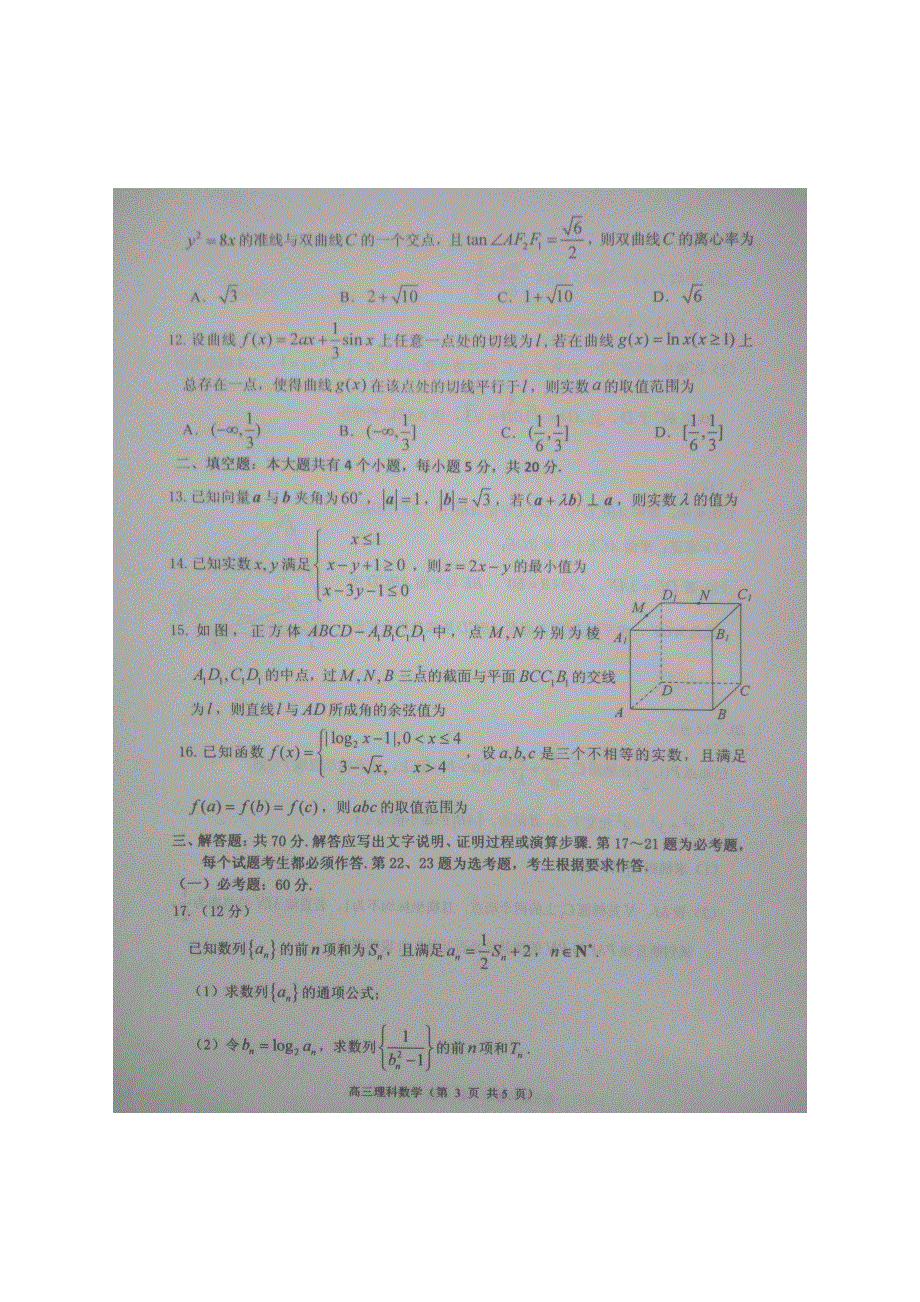 y²=8x的准线与双曲线C的一个交点，且tan∠AF₂F₁=√6/2，则双曲线C的离心率为
A．√3 B．2+√10 C．1+√10 D．√6
12.设曲线f(x)=2ax+1/3 sin x上任意一点处的切线为l,若在曲线g(x)=ln x(x≥1)上
总存在一点，使得曲线g(x)在该点处的切线平行于l，则实数a的取值范围为
A．(-∞,1/3) B．(-∞,1/3] C．(1/6,1/3] D．[1/6,1/3]
二、填空题：本大题共有4个小题，每小题5分，共20分.
13.已知向量a与b夹角为60°，|a|=1，|b|=√3，若(a+λb)⊥a，则实数λ的值为
14.已知实数x,y满足{x≤1 x-y+1≥0 x-3y-1≤0，则z=2x-y的最小值为
15.如图，正方体ABCD-A₁B₁C₁D₁中，点M,N分别为棱
A₁D₁,C₁D₁的中点，过M,N,B三点的截面与平面BCC₁B₁的交线
为l，则直线l与AD所成角的余弦值为
D₁ N C₁
M
A₁ B₁
D C
A B
16.已知函数f(x)={|log₂x-1|,0<x≤4 3-√x, x>4，设a,b,c是三个不相等的实数，且满足
f(a)=f(b)=f(c)，则abc的取值范围为
三、解答题：共70分.解答应写出文字说明、证明过程或演算步骤.第17～21题为必考题，
每个试题考生都必须作答.第22、23题为选考题，考生根据要求作答.
（一）必考题：60分.
17.（12分）
已知数列{aₙ}的前n项和为Sₙ，且满足aₙ=1/2 Sₙ+2，n∈N*.
（1）求数列{aₙ}的通项公式；
（2）令bₙ=log₂aₙ，求数列{1/(bₙ²-1)}的前n项和Tₙ.
高三理科数学（第 3 页 共5 页）